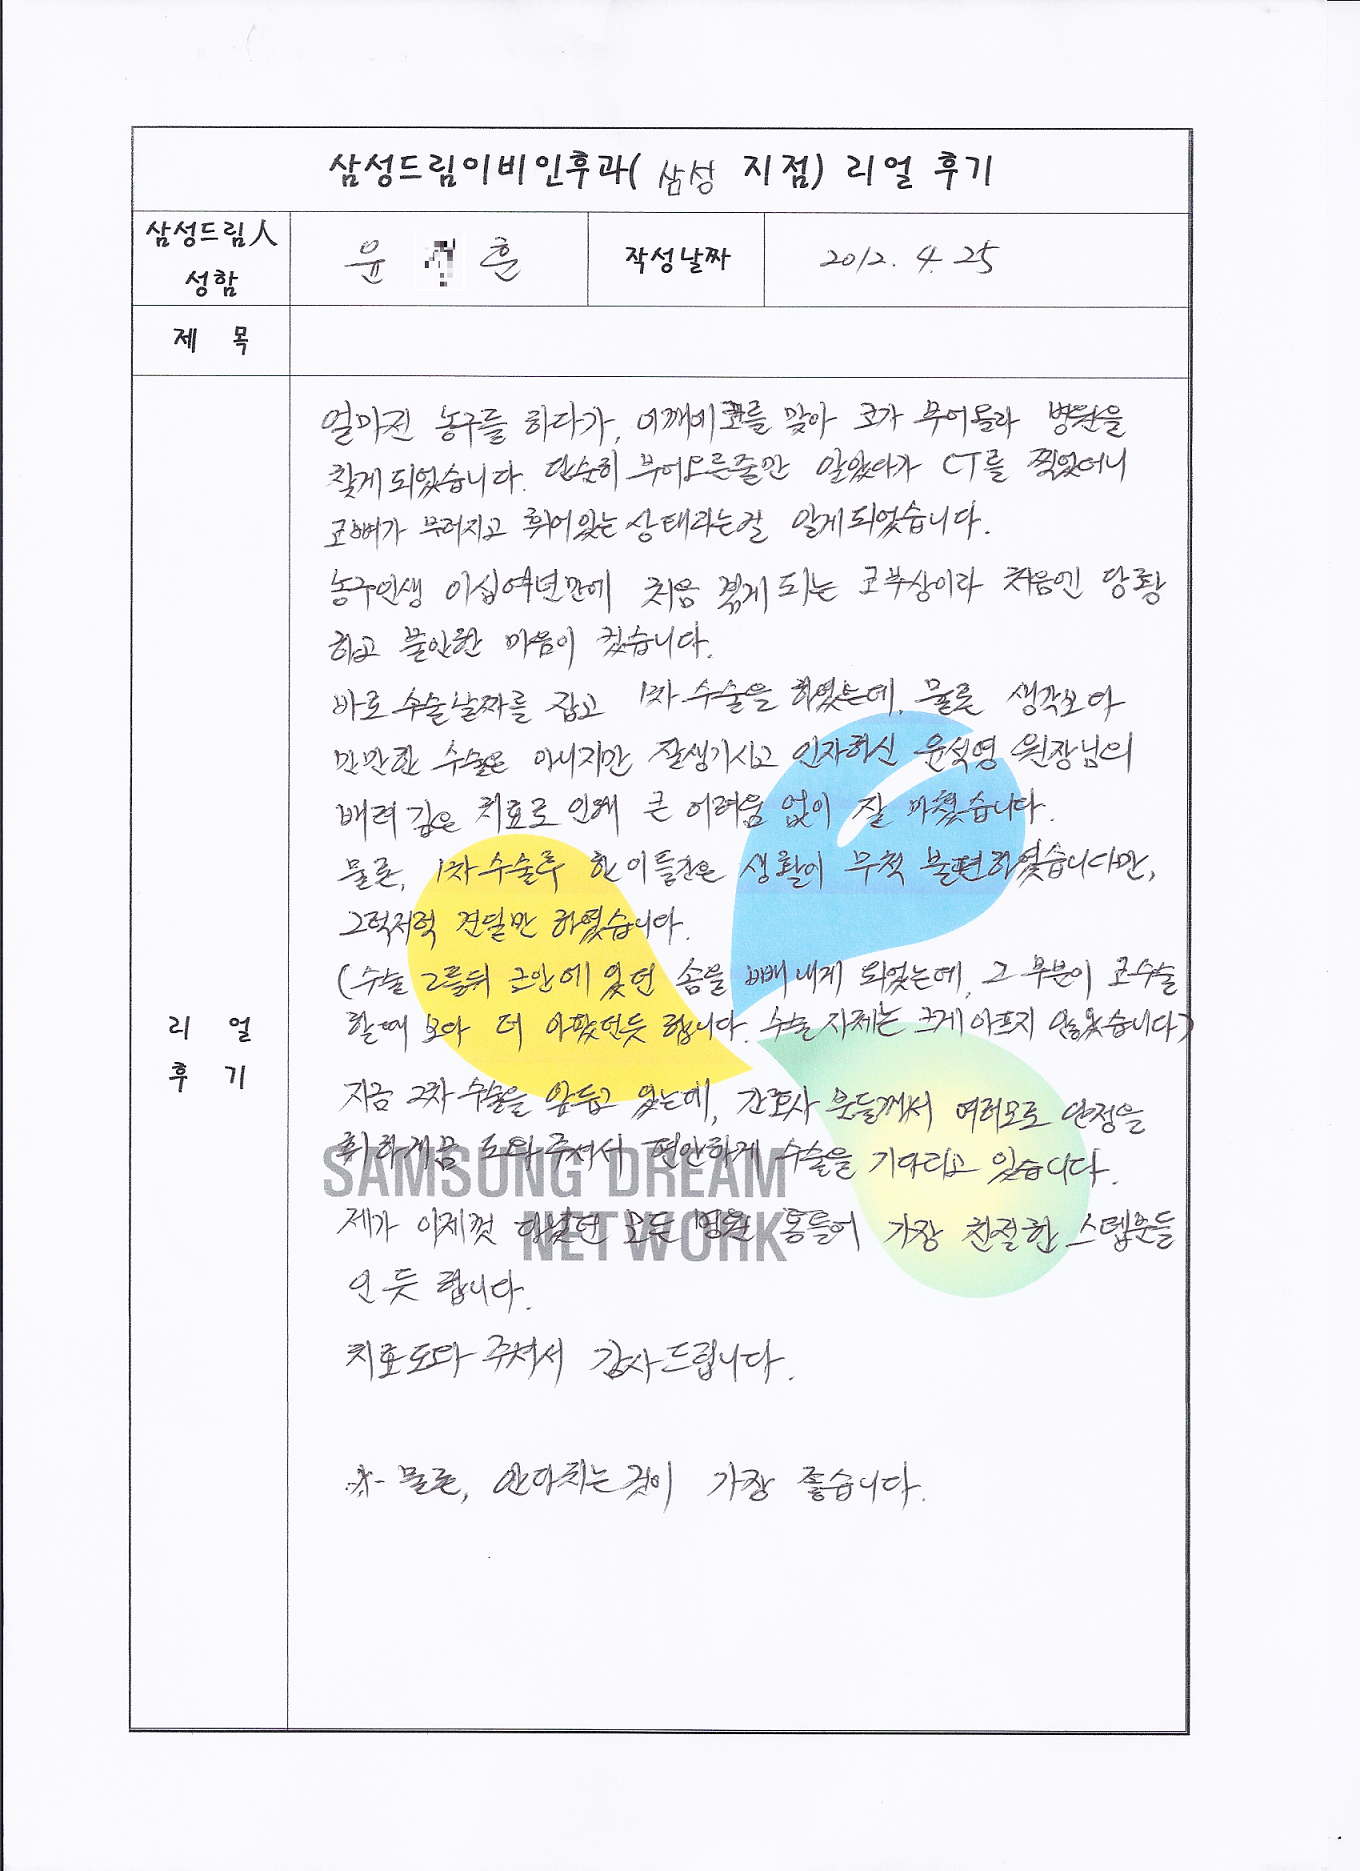 삼성드림이비인후과( 삼성 지점) 리얼 후기
삼성드림人 성함
윤 훈
작성날짜
2012. 4. 25
제 목
리 얼 후 기
얼마전 농구를 하다가, 어깨에 코를 맞아 코가 부어올라 병원을
찾게 되었습니다. 단순히 부어오른줄만 알았다가 CT를 찍었더니
코뼈가 부러지고 휘어있는 상태라는걸 알게되었습니다.
농구인생 이십여년만에 처음 겪게 되는 코부상이라 처음엔 당황
하고 불안한 마음이 컸습니다.
바로 수술날짜를 잡고 1차 수술을 하였는데, 물론 생각보다
만만한 수술은 아니지만 잘생기시고 인자하신 윤석영 원장님의
배려 깊은 치료로 인해 큰 어려움 없이 잘 마쳤습니다.
물론, 1차수술후 한 이틀간은 생활이 무척 불편하였습니다만,
그럭저럭 견딜만 하였습니다.
(수술 2틀뒤 코안에 있던 솜을 빼내게 되었는데, 그 부분이 코수술
할때 보다 더 아팠던듯 합니다. 수술 자체는 크게 아프지 않았습니다)
지금 2차 수술을 앞두고 있는데, 간호사 분들께서 여러모로 안정을
취하게끔 도와주셔서 편안하게 수술을 기다리고 있습니다.
제가 이제껏 다녔던 모든 병원 통틀어 가장 친절한 스텝분들
인듯 합니다.
치료도와 주셔서 감사드립니다.
※ 물론, 안다치는것이 가장 좋습니다.
SAMSUNG DREAM
NETWORK